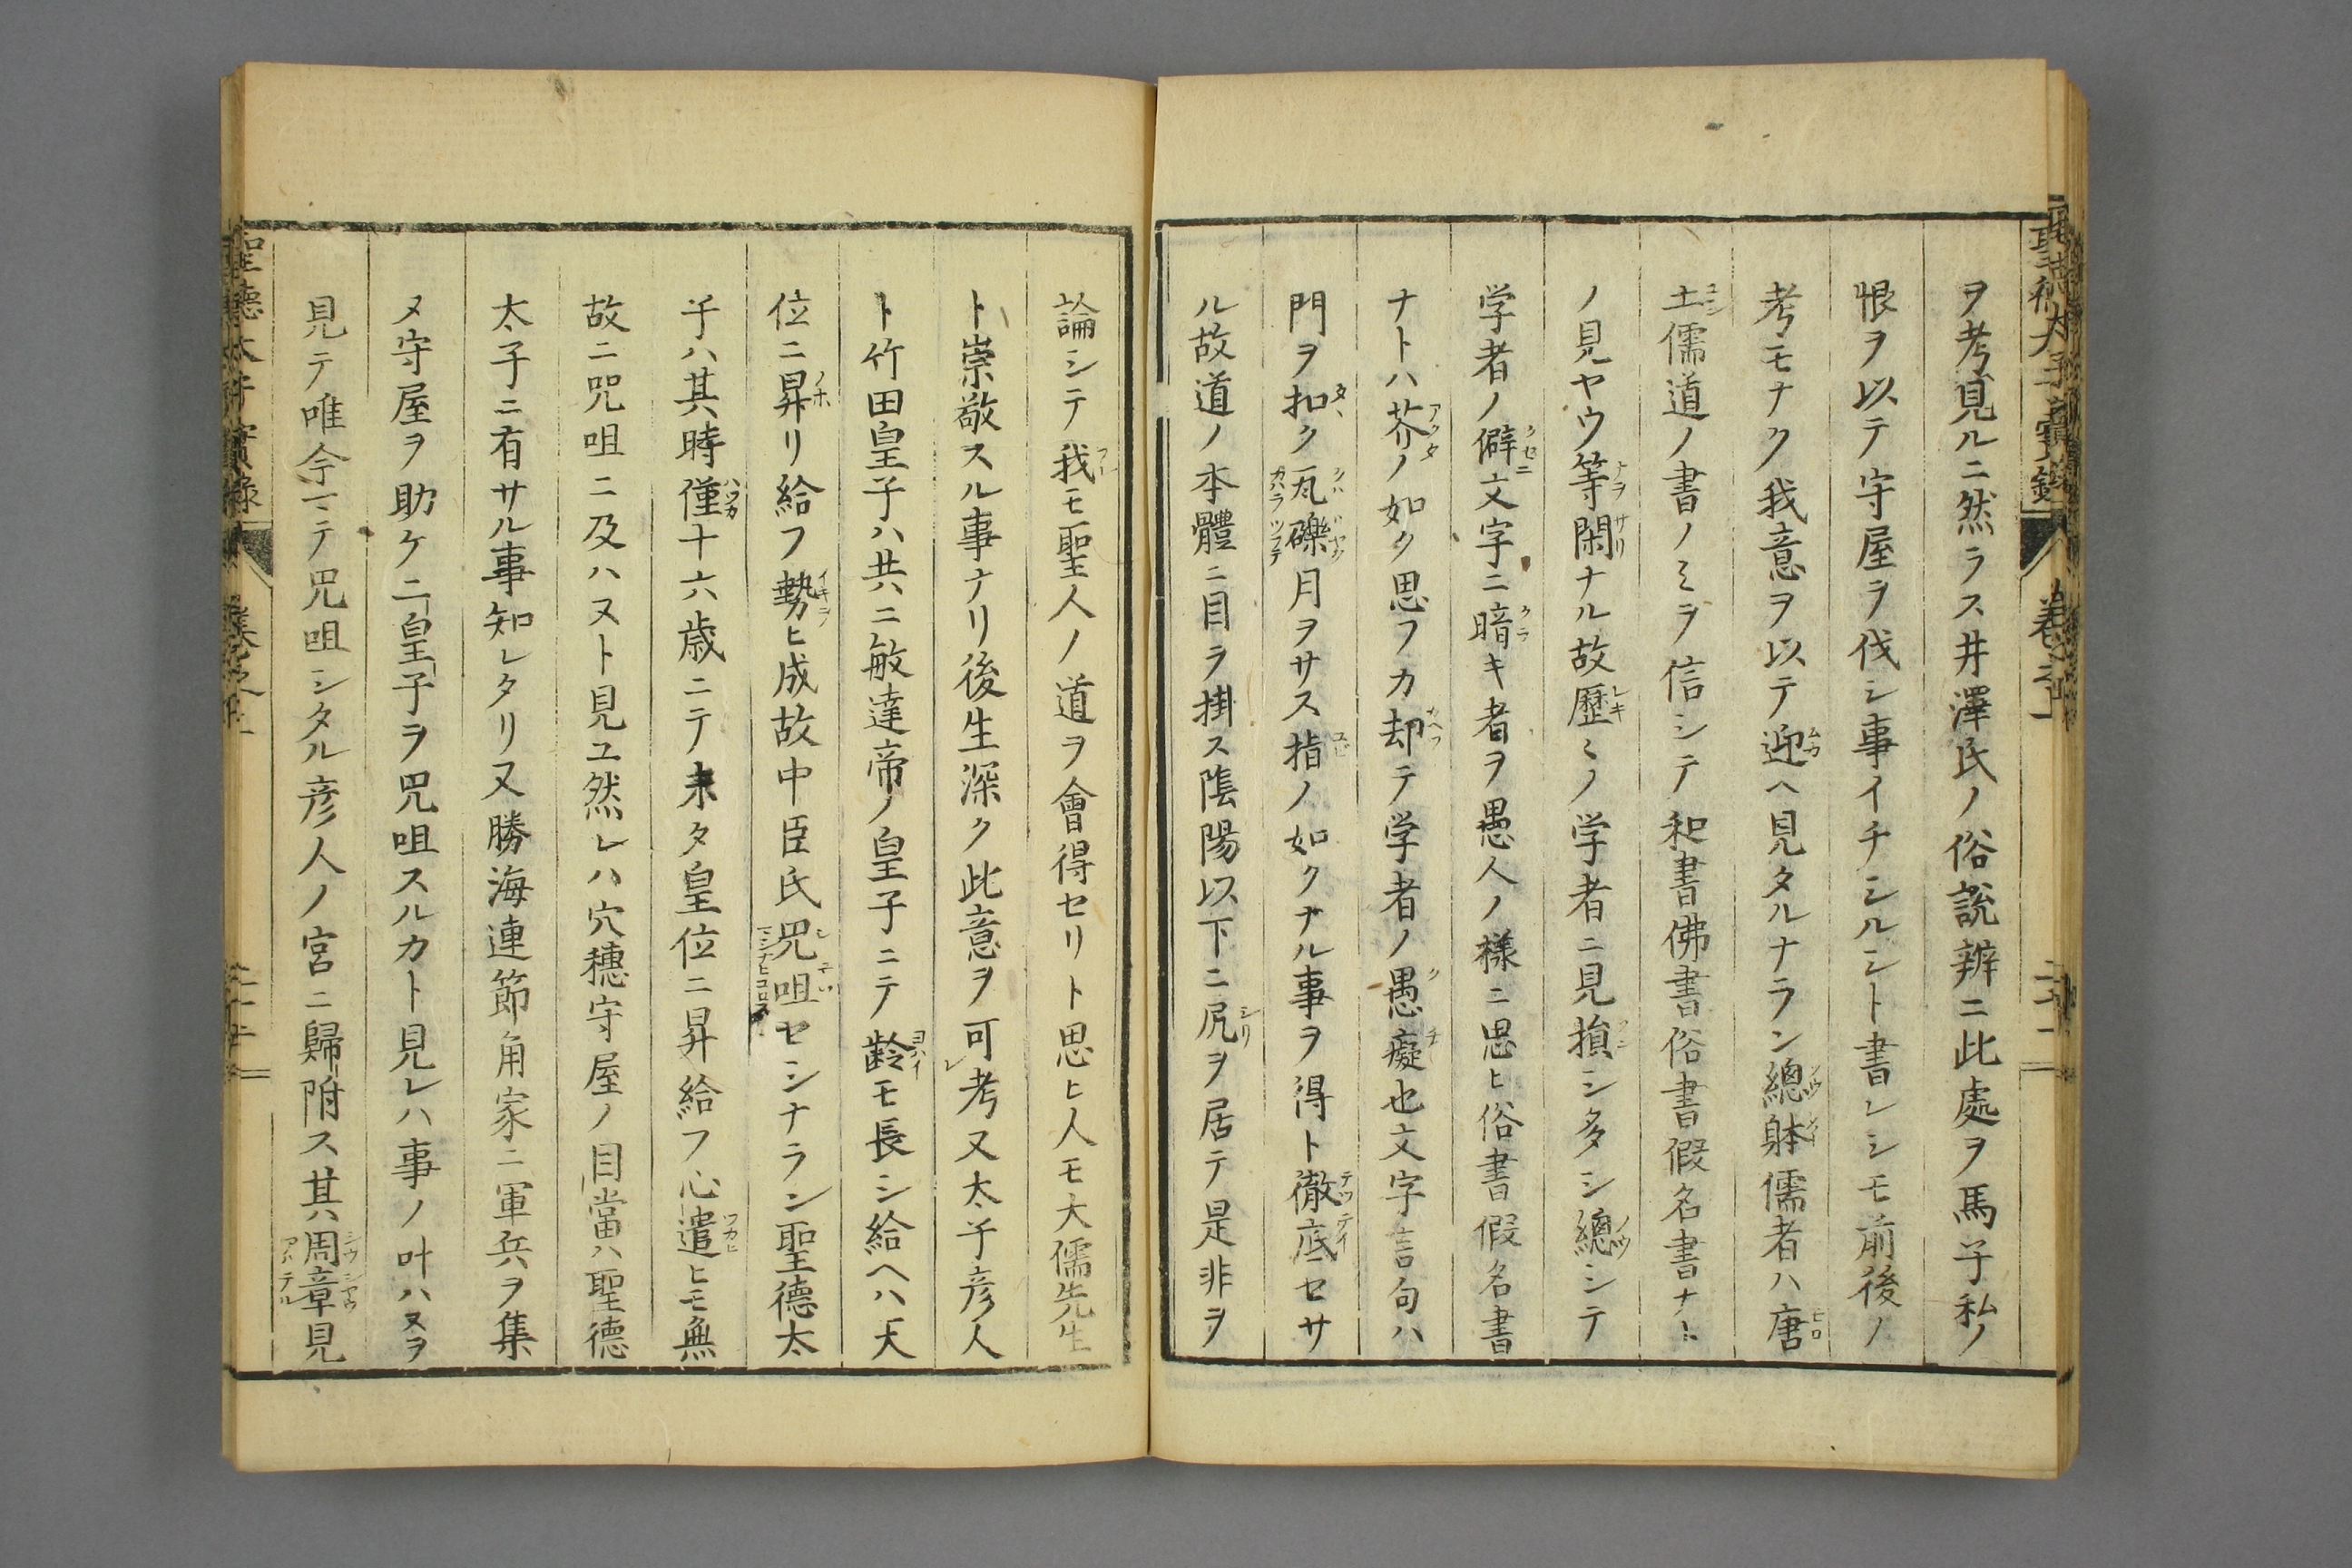 ヲ考見ルニ然ラス井澤氏ノ俗説辨ニ此處ヲ馬子私ノ
恨ヲ以テ守屋ヲ伐シ事イチシルシト書レシモ前後ノ
考モナク我意ヲ以テ迎ヘ見タルナラン總躰儒者ハ唐
土儒道ノ書ノミヲ信シテ和書佛書俗書假名書ナト
ノ見ヤウ等閑ナル故歴〻ノ学者ニ見損シ多シ總シテ
学者ノ僻文字ニ暗キ者ヲ愚人ノ様ニ思ヒ俗書假名書
ナトハ芥ノ如ク思フカ却テ学者ノ愚癡也文字言句ハ
門ヲ扣ク瓦礫月ヲサス指ノ如クナル事ヲ得ト徹底セサ
ル故道ノ本體ニ目ヲ掛ス陰陽以下ニ尻ヲ居テ是非ヲ
論シテ我モ聖人ノ道ヲ會得セリト思ヒ人モ大儒先生
ト崇敬スル事ナリ後生深ク此意ヲ可レ考又太子彦人
ト竹田皇子ハ共ニ敏達帝ノ皇子ニテ齢モ長シ給ヘハ天
位ニ昇リ給フ勢ヒ成故中臣氏咒咀セシナラン聖德太
子ハ其時僅十六歳ニテ未タ皇位ニ昇給フ心遣ヒモ無
故ニ咒咀ニ及ハヌト見ユ然レハ穴穗守屋ノ目當ハ聖德
太子ニ有サル事知レタリ又勝海連節角家ニ軍兵ヲ集
メ守屋ヲ助ケ二皇子ヲ咒咀スルカト見レハ事ノ叶ハヌヲ
見テ唯今マテ咒咀シタル彦人ノ宮ニ歸附ス其周章見
聖德太子實錄